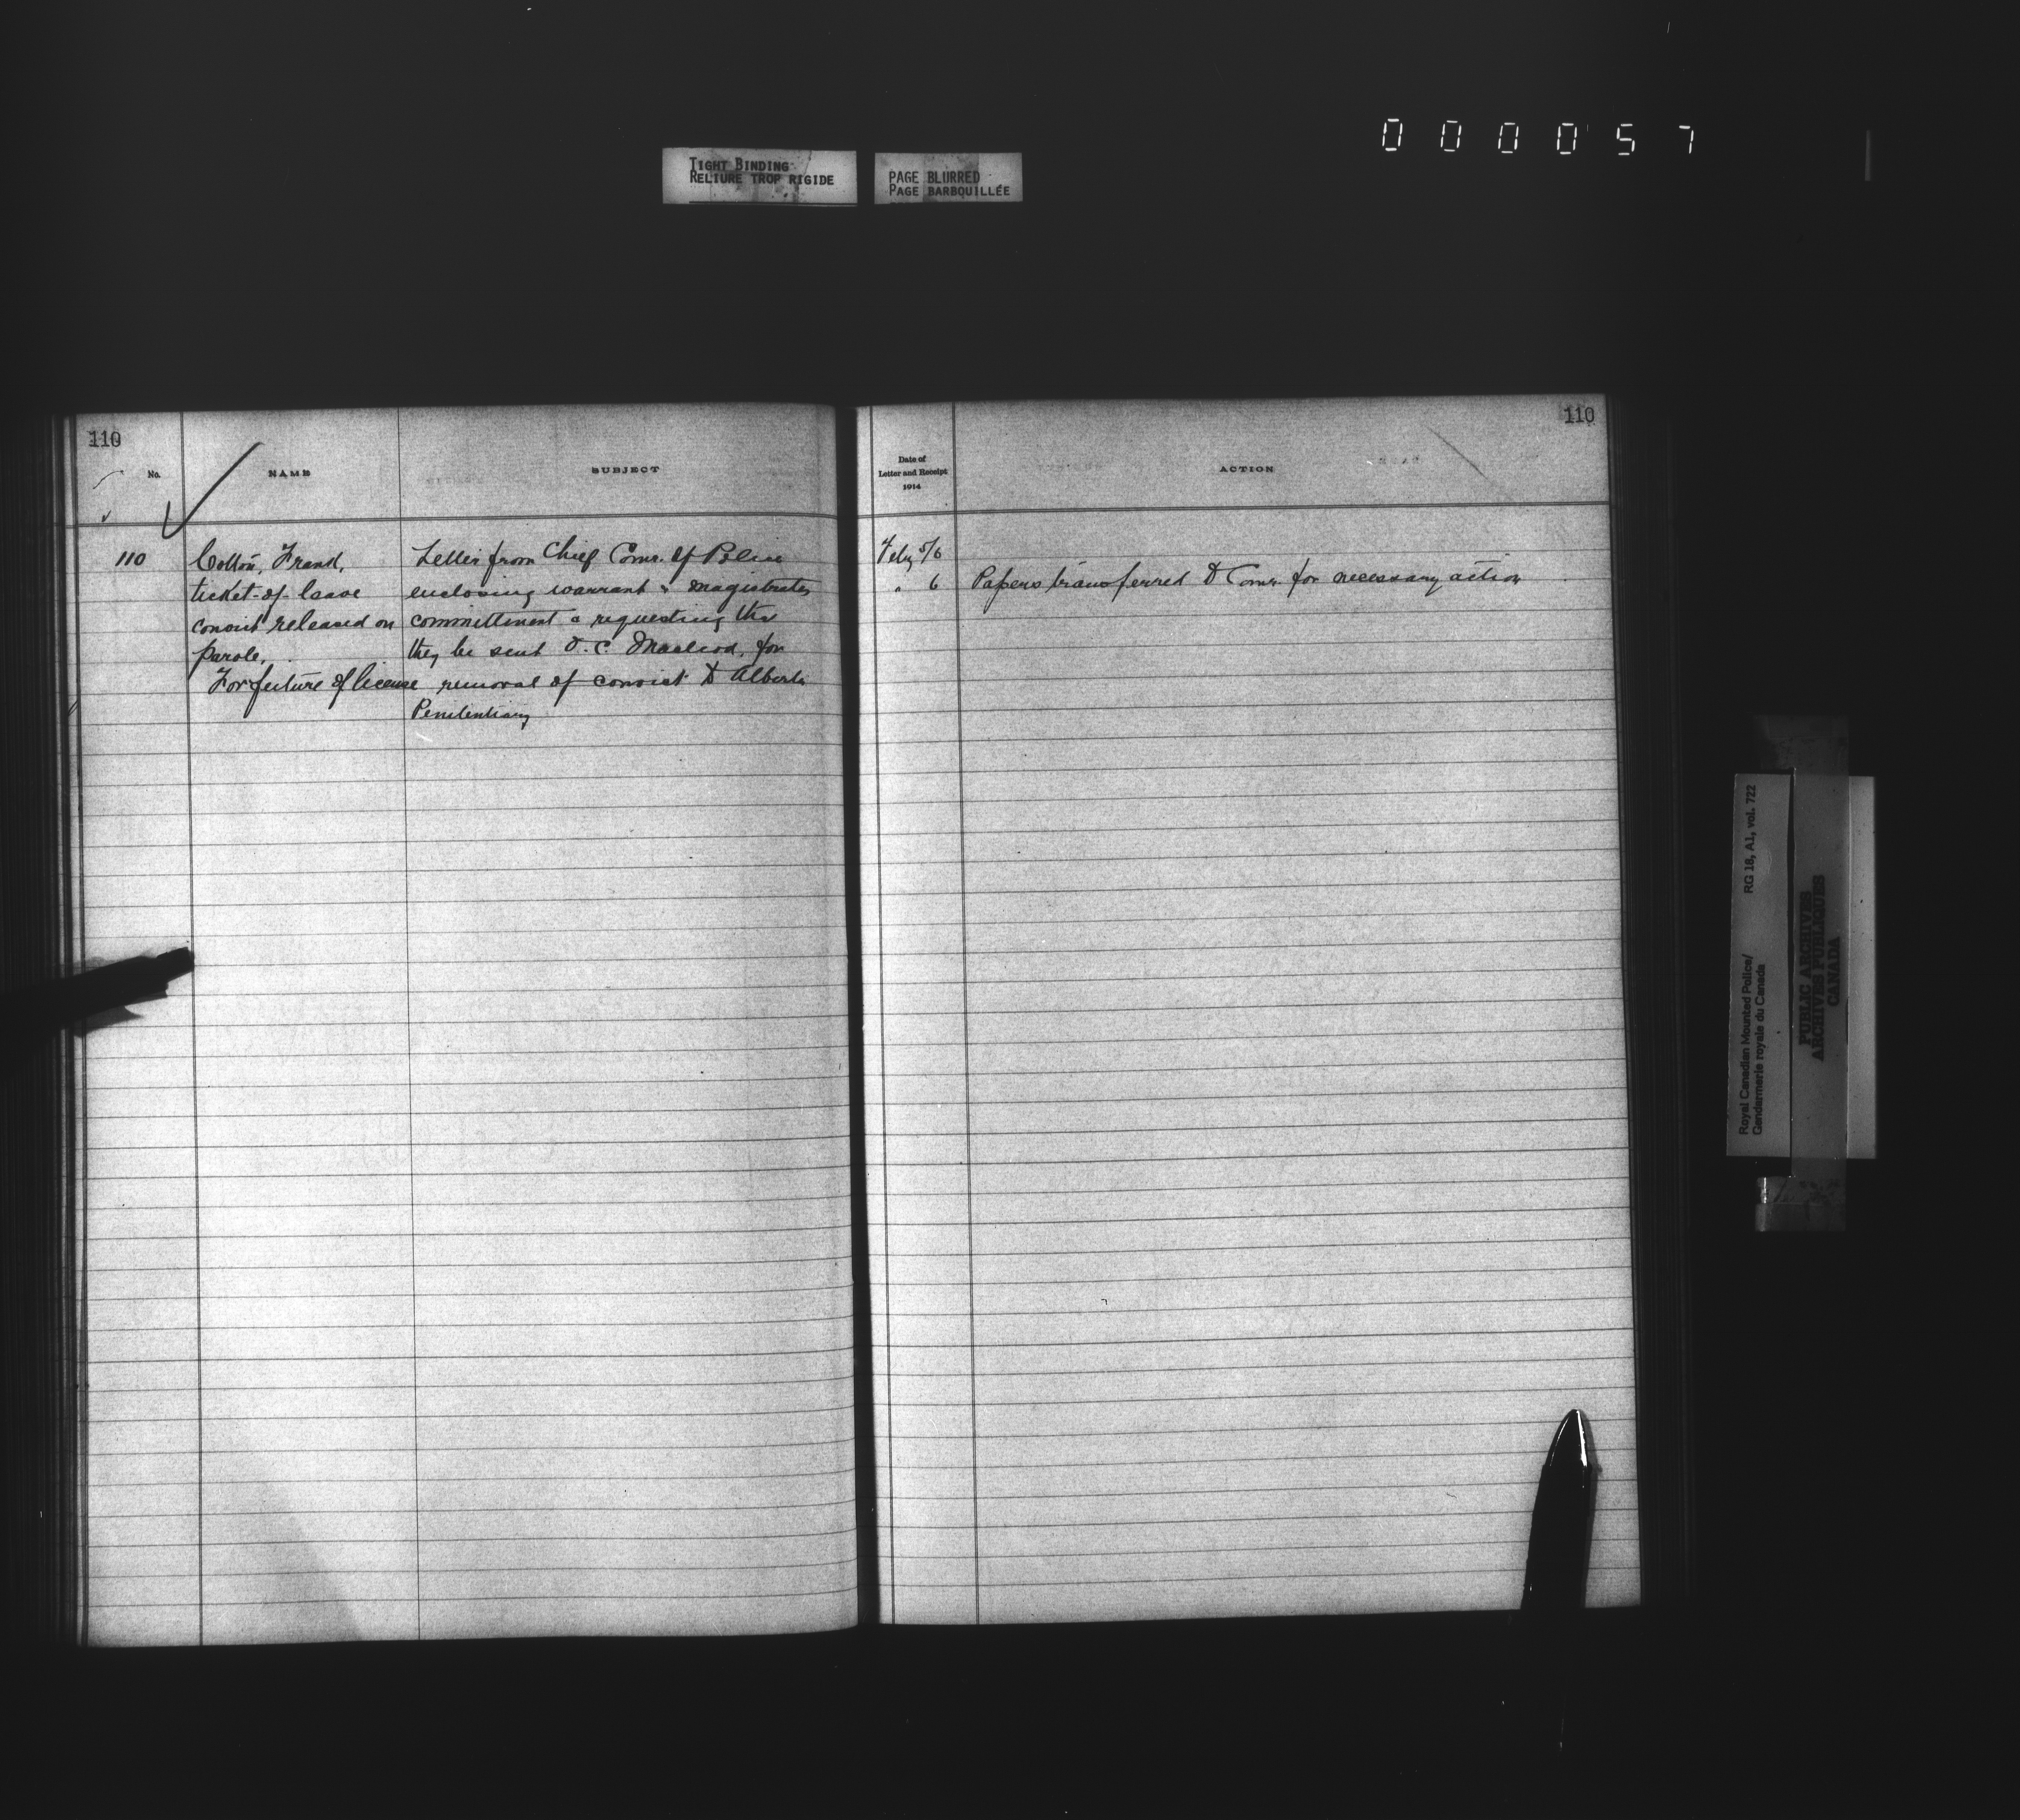 000057
TIGHT BINDING
RELIURE TROP RIGIDE
PAGE BLURRED
PAGE BARBOUILLÉE
110
No.
NAME
SUBJECT
110 Cotton, Frank,
ticket-of-leave
convict released on
parole,
Forfeiture of license
Letter from Chief Comr. of Police
enclosing warrant & magistrates
committment & requesting tha
they be sent O.C. Macleod, for
removal of convict to Alberta
Penitentiary
110
Date of
Letter and Receipt
1914
ACTION
Feby 5/6
" 6 Papers transferred to Comr. for necessary action
Royal Canadian Mounted Police/
Gendarmerie royale du Canada
RG 18, A1, vol. 722
PUBLIC ARCHIVES
ARCHIVES PUBLIQUES
CANADA